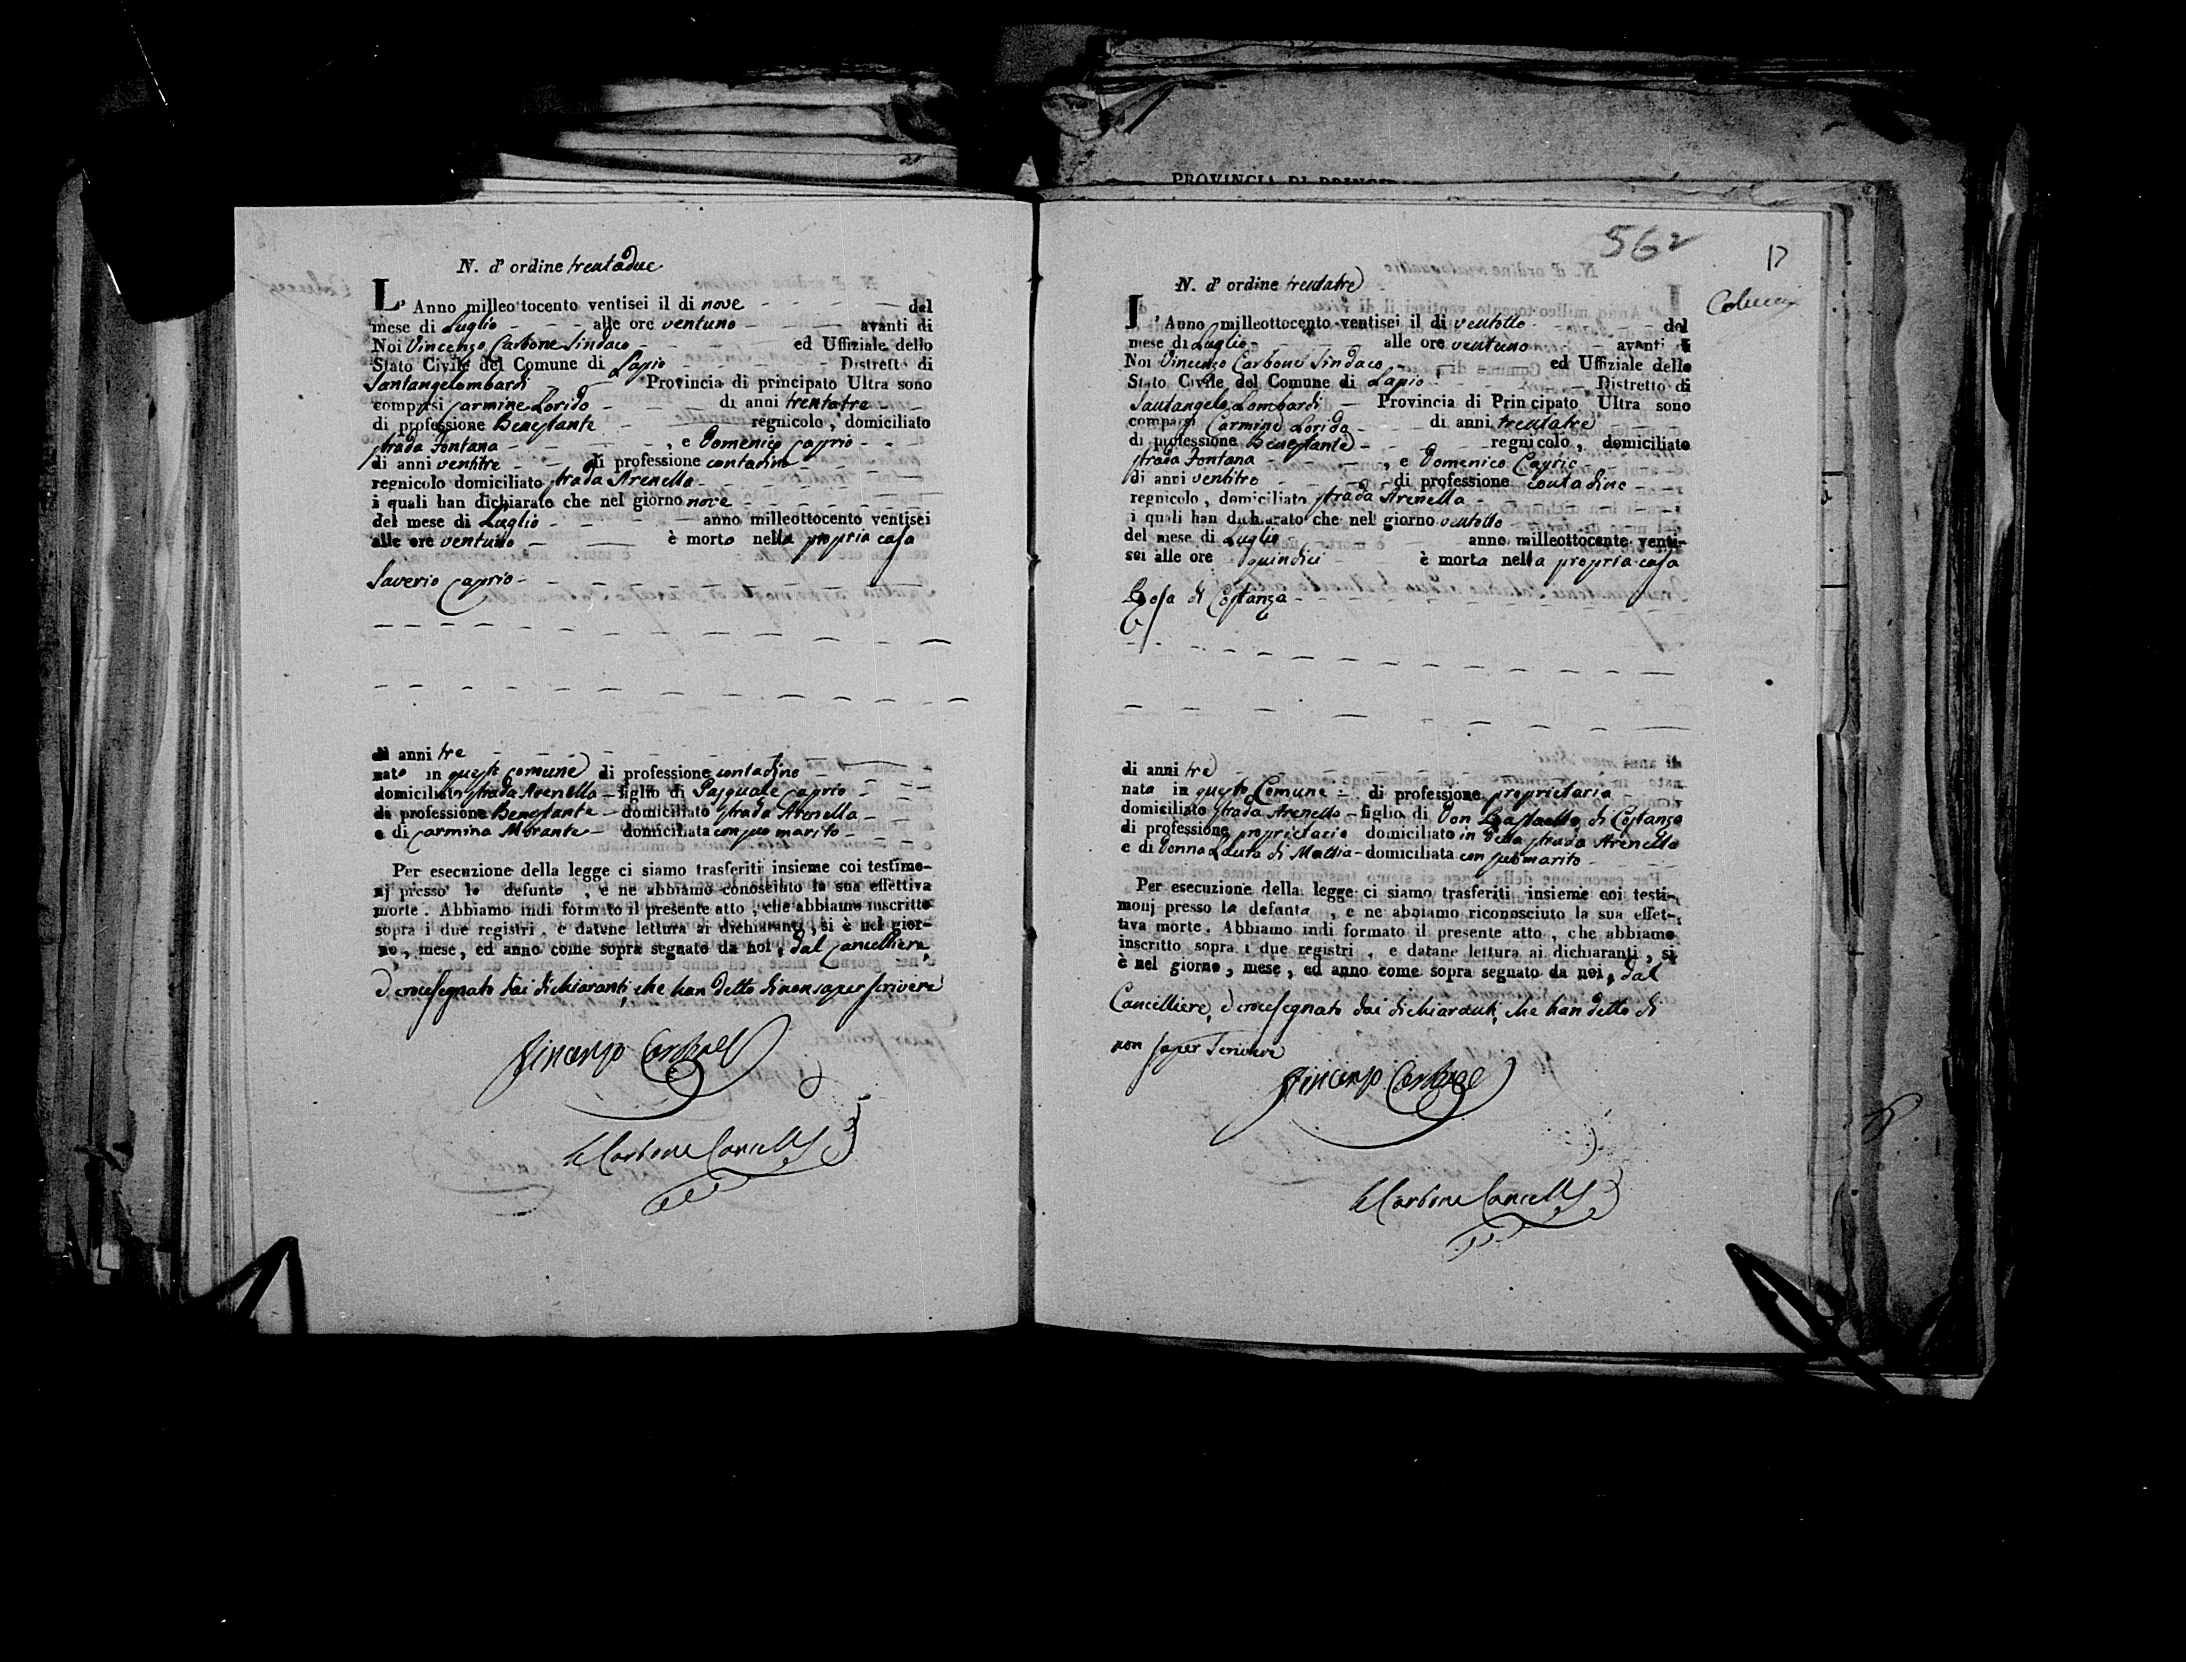 N. d' ordine trentadue
L' Anno milleottocento ventisei il di nove del
mese di Luglio alle ore ventuno avanti di
Noi Vincenzo Carbone Sindaco ed Uffiziale dello
Stato Civile del Comune di Lapio Distretto di
Santangelombardi Provincia di principato Ultra sono
comparsi Carmine Lorido di anni trentatre
di professione Benestante regnicolo, domiciliato
strada Fontana, e Domenico Caprio
di anni ventitre di professione contadino
regnicolo domiciliato strada Arenella
i quali han dichiarato che nel giorno nove
del mese di Luglio anno milleottocento ventisei
alle ore ventuno è morto nella propria casa
Saverio Caprio
di anni tre
nato in questo comune di professione contadino
domiciliato strada Arenella figlio di Pasquale Caprio
di professione Benestante domiciliato strada Arenella
e di Carmina Morante domiciliata con suo marito
Per esecuzione della legge ci siamo trasferiti insieme coi testimo-
nj presso lo defunto, e ne abbiamo conosciuto la sua effettiva
morte. Abbiamo indi formato il presente atto, che abbiamo inscritto
sopra i due registri, e datene lettura ai dichiaranti, si è nel gior-
no, mese, ed anno come sopra segnato da noi, dal Cancelliere,
e crocesegnato dai dichiaranti, che han detto di non saper scrivere
Vincenzo Carbone
Carbone Cancell
PROVINCIA DI
562
17
N. d' ordine trentatre
L' Anno milleottocento ventisei il di ventotto del
mese di Luglio alle ore ventuno avanti
Noi Vincenzo Carbone Sindaco ed Uffiziale dello
Stato Civile del Comune di Lapio Distretto di
Santangelo Lombardi Provincia di Principato Ultra sono
comparsi Carmine Lorido di anni trentatre
di professione Benestante regnicolo, domiciliato
strada Fontana, e Domenico Caprio
di anni ventitre di professione contadino
regnicolo, domiciliato strada Arenella
i quali han dichiarato che nel giorno ventotto
del mese di Luglio anno milleottocento venti-
sei alle ore quindici è morta nella propria casa
Rosa di Costanza
di anni tre
nata in questo Comune di professione proprietaria
domiciliato strada Arenella figlia di Don Raffaello di Costanzo
di professione proprietario domiciliato in detta strada Arenella
e di Donna Laura di Mattia domiciliata con suo marito
Per esecuzione della legge ci siamo trasferiti insieme coi testi-
monj presso la defunta, e ne abbiamo riconosciuto la sua effet-
tiva morte. Abbiamo indi formato il presente atto, che abbiamo
inscritto sopra i due registri, e datane lettura ai dichiaranti, si
è nel giorno, mese, ed anno come sopra segnato da noi, dal
Cancelliere, e crocesegnato dai dichiaranti, che han detto di
non saper scrivere
Vincenzo Carbone
Carbone Cancell